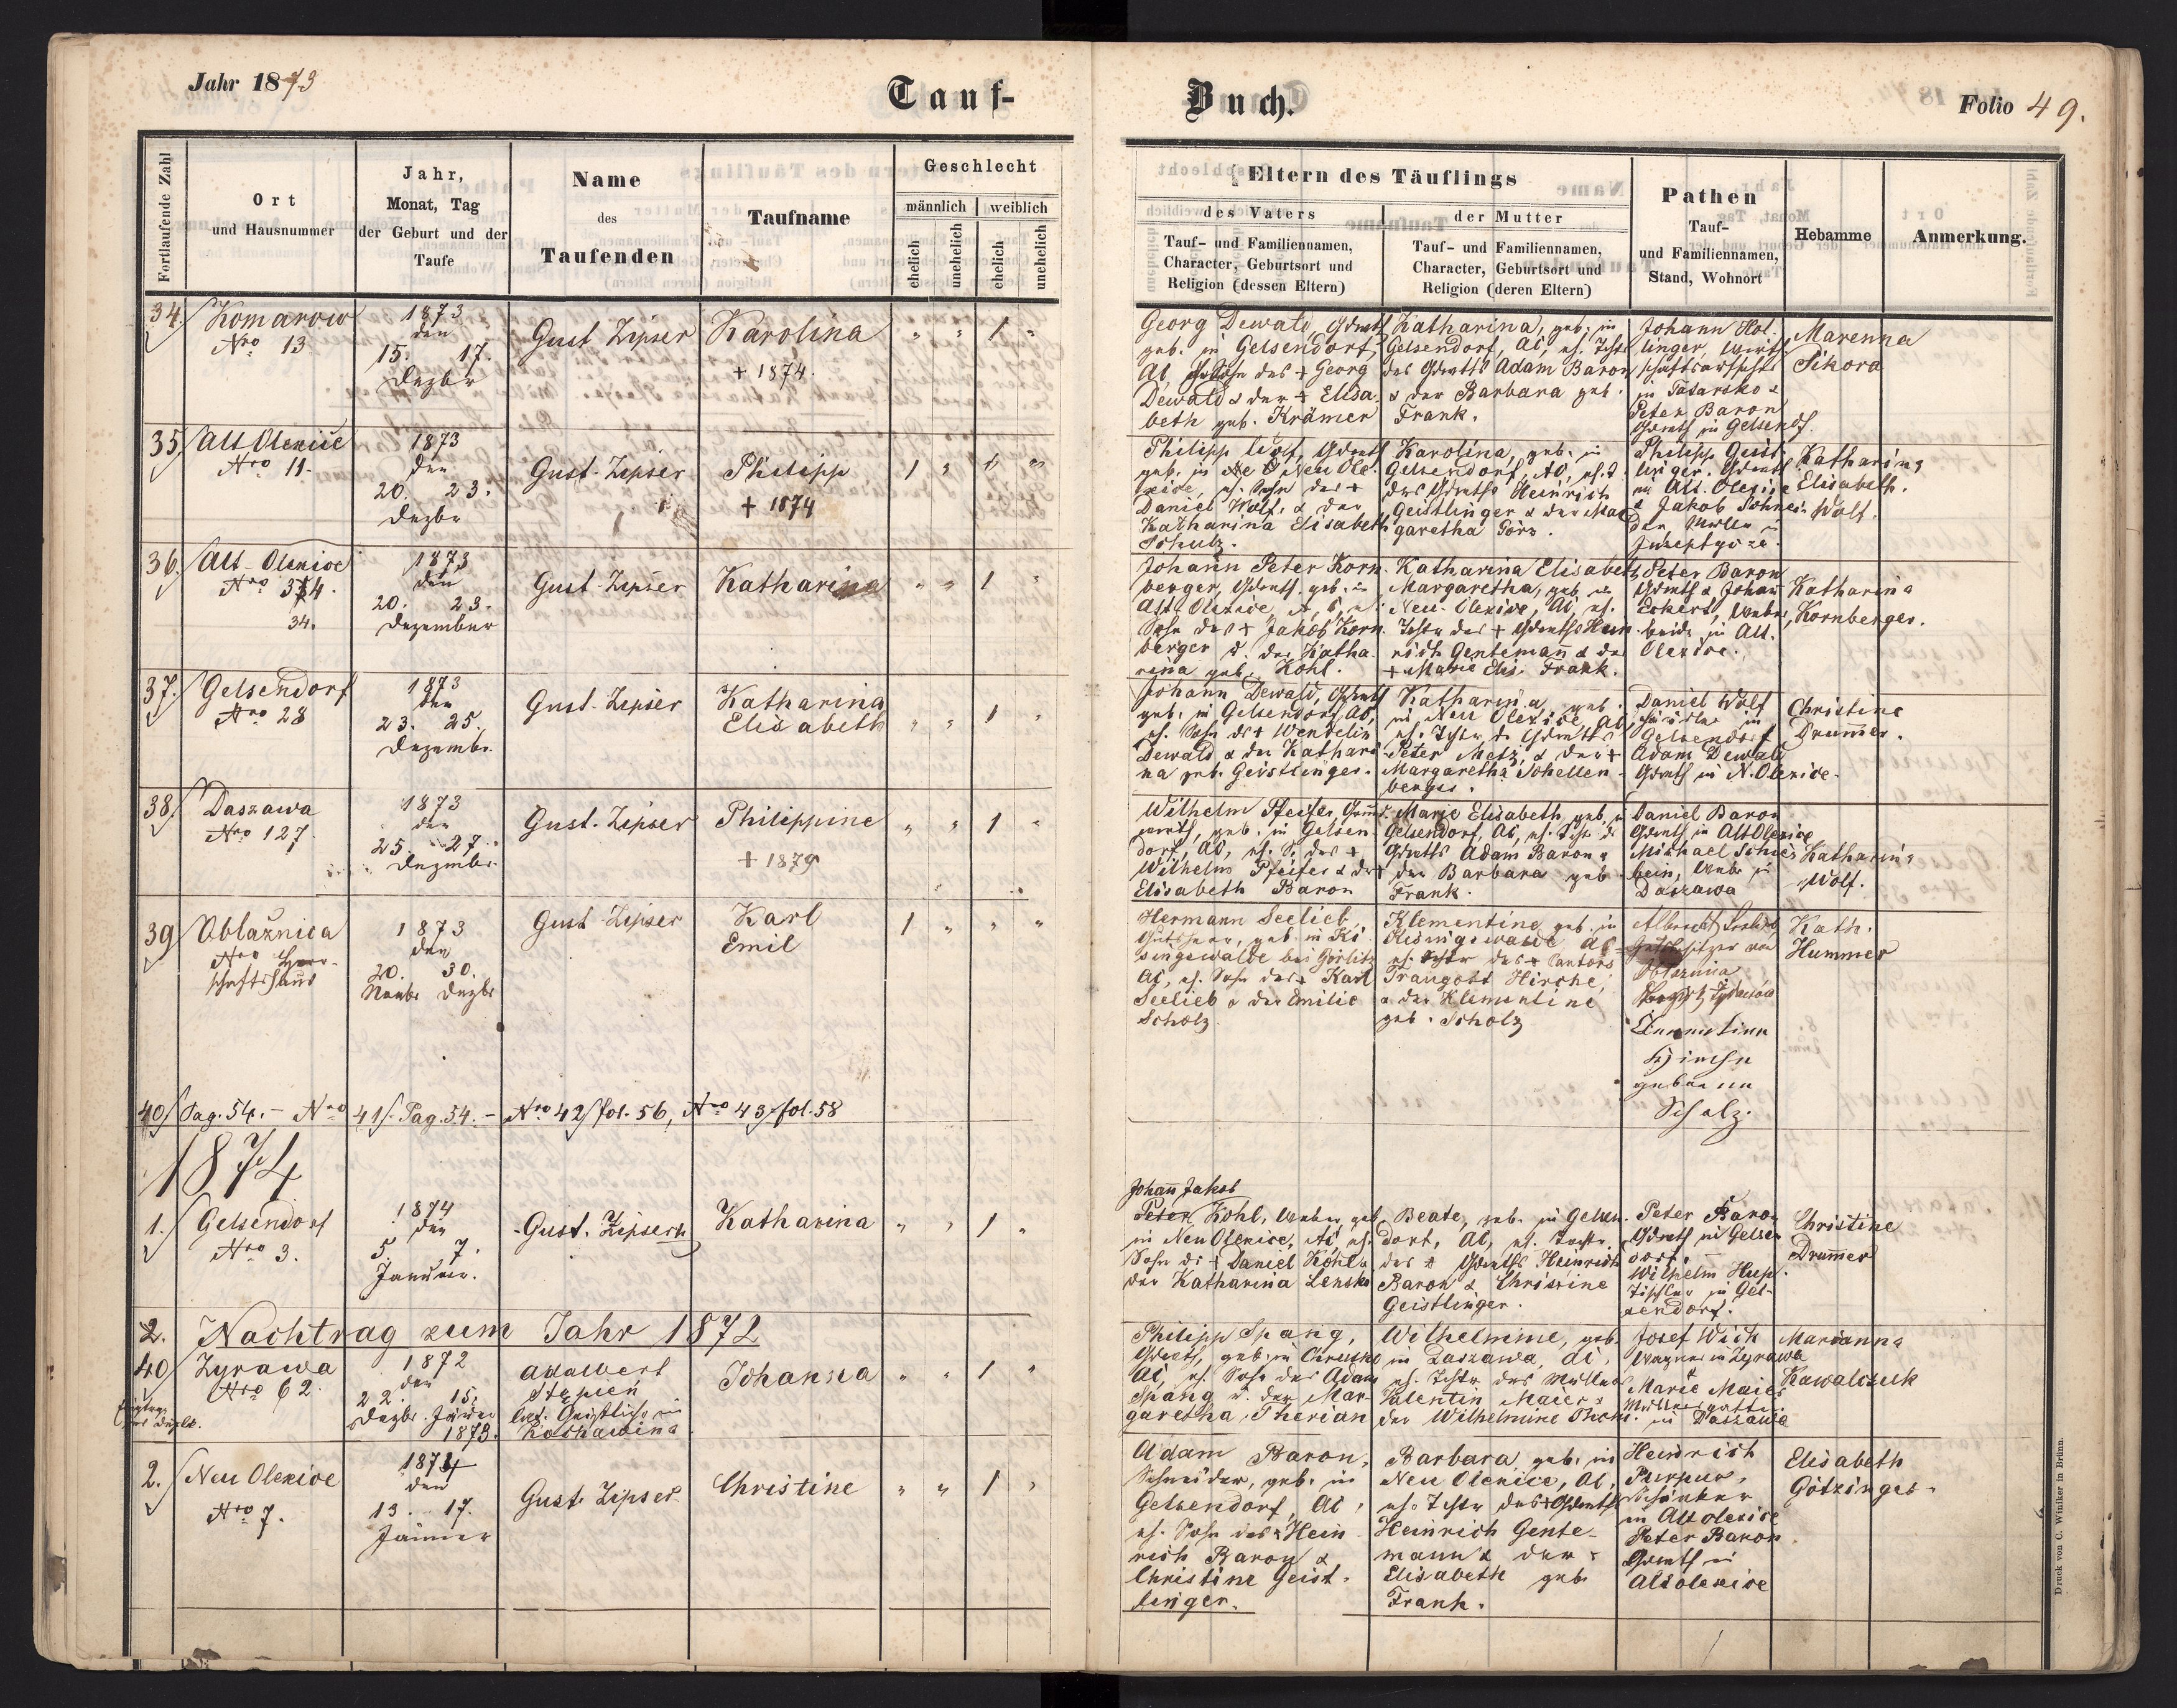 Jahr 1873
Tauf-
Buch.
Folio 49.
Fortlaufende Zahl
Ort
und Hausnummer
Jahr,
Monat, Tag
der Geburt und der
Taufe
Name
des
Taufenden
Taufname
Geschlecht
männlich
weiblich
ehelich
unehelich
ehelich
unehelich
Eltern des Täuflings
des Vaters
Tauf- und Familiennamen,
Character, Geburtsort und
Religion (dessen Eltern)
der Mutter
Tauf- und Familiennamen,
Character, Geburtsort und
Religion (deren Eltern)
Pathen
Tauf-
und Familiennamen,
Stand, Wohnort
Hebamme
Anmerkung.
34.
Komarow
Nro 13
1873
den
15. 17.
Dezbr
Gust Zipser
Karolina
+ 1874.
" " 1 "
Georg Dewald, Gdwth
geb. in Gelsendorf,
AC, Sohn des + Georg
Dewald & der + Elisa
beth geb. Krämer
Katharina, geb. in
Gelsendorf, AC, eh. Tchtr
des Gdwths Adam Baron
& der Barbara geb.
Frank.
Johann Hol-
linger, Wirth
in Tatarsko &
Peter Baron
Gdwth in Gelsendf.
Marenna
Sikora
35
Alt Olexice
Nro 11.
1873
den
20. 23.
Dezbr
Gust. Zipser
Philipp
+ 1874
1 " " "
Philipp Wolf, Gdwth
geb. in Neu Ole-
xice, eh. Sohn des +
Daniel Wolf, & der
Katharina Elisabeth
Schulz.
Karolina, geb. in
Gelsendorf, AC, eh. T.
des Gdwths Heinrich
Geistlinger & der Mar
garetha Görz.
Philipp Geist-
linger, Gdwth
in Alt. Olexice
& Jakob Schnei-
der, Müller in
Katharina
Elisabeth.
Wolf.
36.
Alt-Olexice
Nro 334.
34.
1873
den
20. 23.
Dezember
Gust-Zipser
Katharina
" " 1 "
Johann Peter Korn
berger, Gdwth. geb. in
Alt Olexice, A, C, eh.
Sohn des + Jakob Korn
berger & der Katha
rina geb. Kohl.
Katharina Elisabeth
Margaretha, geb. in
Neu-Olexice, AC, eh.
Tchtr des + Gdwths Hein
rich Gentemañ & der
+ Marie Elis. Frank.
Peter Baron
Gdwth & Johañ
Eckert, Weber,
beide in Alt.
Olexice.
Katharina
Kornberger.
37.
Gelsendorf
Nro 28
1873
den
23. 25.
Dezembr.
Gust-Zipser
Katharina
Elisabeth
" " 1 "
Johann Dewald, Gdwth
geb. in Gelsendorf AC,
eh. Sohn ds + Wendelin
Dewald & der Kathari
na geb. Geistlinger.
Katharina geb.
in Neu Olexice, AC
eh. Tchtr ds Gdwths
Peter Metz, & der +
Margaretha Schellen-
berger.
Daniel Wolf
in
Gelsendorf
Adam Dewald
Gdwth in N. Olexice.
Christine
Drum̃er.
38
Daszawa
Nro 127.
1873
den
25. 27.
Dezember
Gust. Zipser
Philippine
+ 1879
" " 1 "
Wilhelm Pfeifer,
geb. in Gelsen-
dorf, AC, eh. S. des +
Wilhelm Pfeifer & der
Elisabeth Baron
Marie Elisabeth, geb. in
Gelsendorf, AC, eh. Tchtr ds
Gdwths Adam Baron &
der Barbara geb
Frank.
Daniel Baron
Gdwth in Alt Olexice
Michael Schie-
bein, Weber in
Daszawa
Katharina
Wolf.
39
Oblaźnica
Nro Herr-
schaftshaus
1873
den
20. 30.
Novbr Dezbr
Gust-Zipser
Karl
Emil
1 " " "
Hermann Seelieb,
Gutsherr, geb. in Kö
singswalde bei Görlitz
AC, eh. Sohn des + Karl
Seelieb & der Emilie
Scholz
Klementine geb. in
AC
eh. Tchtr des + Cantors
Traugott Hirche,
& der Klementine
geb. Scholz
Albrecht Seelieb
Gutsbesitzer von
Oblaznica
Clementine
Hirche
geborne
Scholz.
Kath.
Hummer
40/ Pag. 54. - Nro 41/ Pag. 54. - Nro 42/ fol. 56, Nro 43/ fol. 58
1874
1.
Gelsendorf
Nro 3.
1874
den
5. 7.
Januar.
Gust. Zipser
Katharina
" " 1 "
Johañ Jakob
Peter Kohl, Weber, geb
in Neu Olexice, AC eh.
Sohn ds + Daniel Kohl &
der Katharina Lensko
Beate, geb. in Gelsen-
dorf, AC, eh. Tochtr.
des + Gdwths Heinrich
Baron & Christine
Geistlinger.
Peter Baron
Gdwth in Gelsen
dorf. -
Wilhelm Hup
Tischler in Gel-
sendorf.
Christine
Drum̃er
2.
Nachtrag zum Jahr 1872
40
Zyrawa
Nro 62.
1872
den
22. 15.
Dezbr. Jänner
1873.
Adalbert
Stepien
Geistlicher in
Kochawina
Johanna
" " 1 "
Philipp Spang,
Gdwth, geb. in
AC, eh. Sohn des Adam
Spang u. der Mar-
garetha Therian
Wilhelmine, geb.
in Daszawa, AC,
eh. Tchtr des Müllers
Valentin Maier &
der Wilhelmine Thom.
Josef Wich
Wagner in Zyrawa
Marie Maier
Müllersgattin
in Daszawa
Marianna
Kawalczuk
2.
Neu Olexice
Nro 7.
1874
den
13. 17.
Jänner
Gust. Zipser
Christine
" " 1 "
Adam Baron,
Schneider, geb. in
Gelsendorf, AC,
eh. Sohn des + Hein
rich Baron &
Christine Geist-
linger.
Barbara geb. in
Neu Olexice, AC,
eh. Tchtr des + Gdwths
Heinrich Gente-
mann & der +
Elisabeth geb
Frank.
Heinrich
Purpur,
Schänker
in Alt olexice
Peter Baron
Gdwth in
Altolexice
Elisabeth
Götzinger.
Druck von C. Winiker in Brünn.